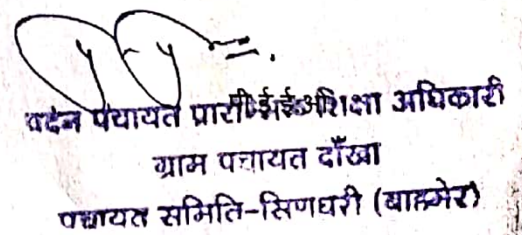 पदेन पंचायत प्रा शिक्षा अधिकारी
ग्राम पंचायत दाँखा
पंचायत समिति-सिणधरी (बाड़मेर)